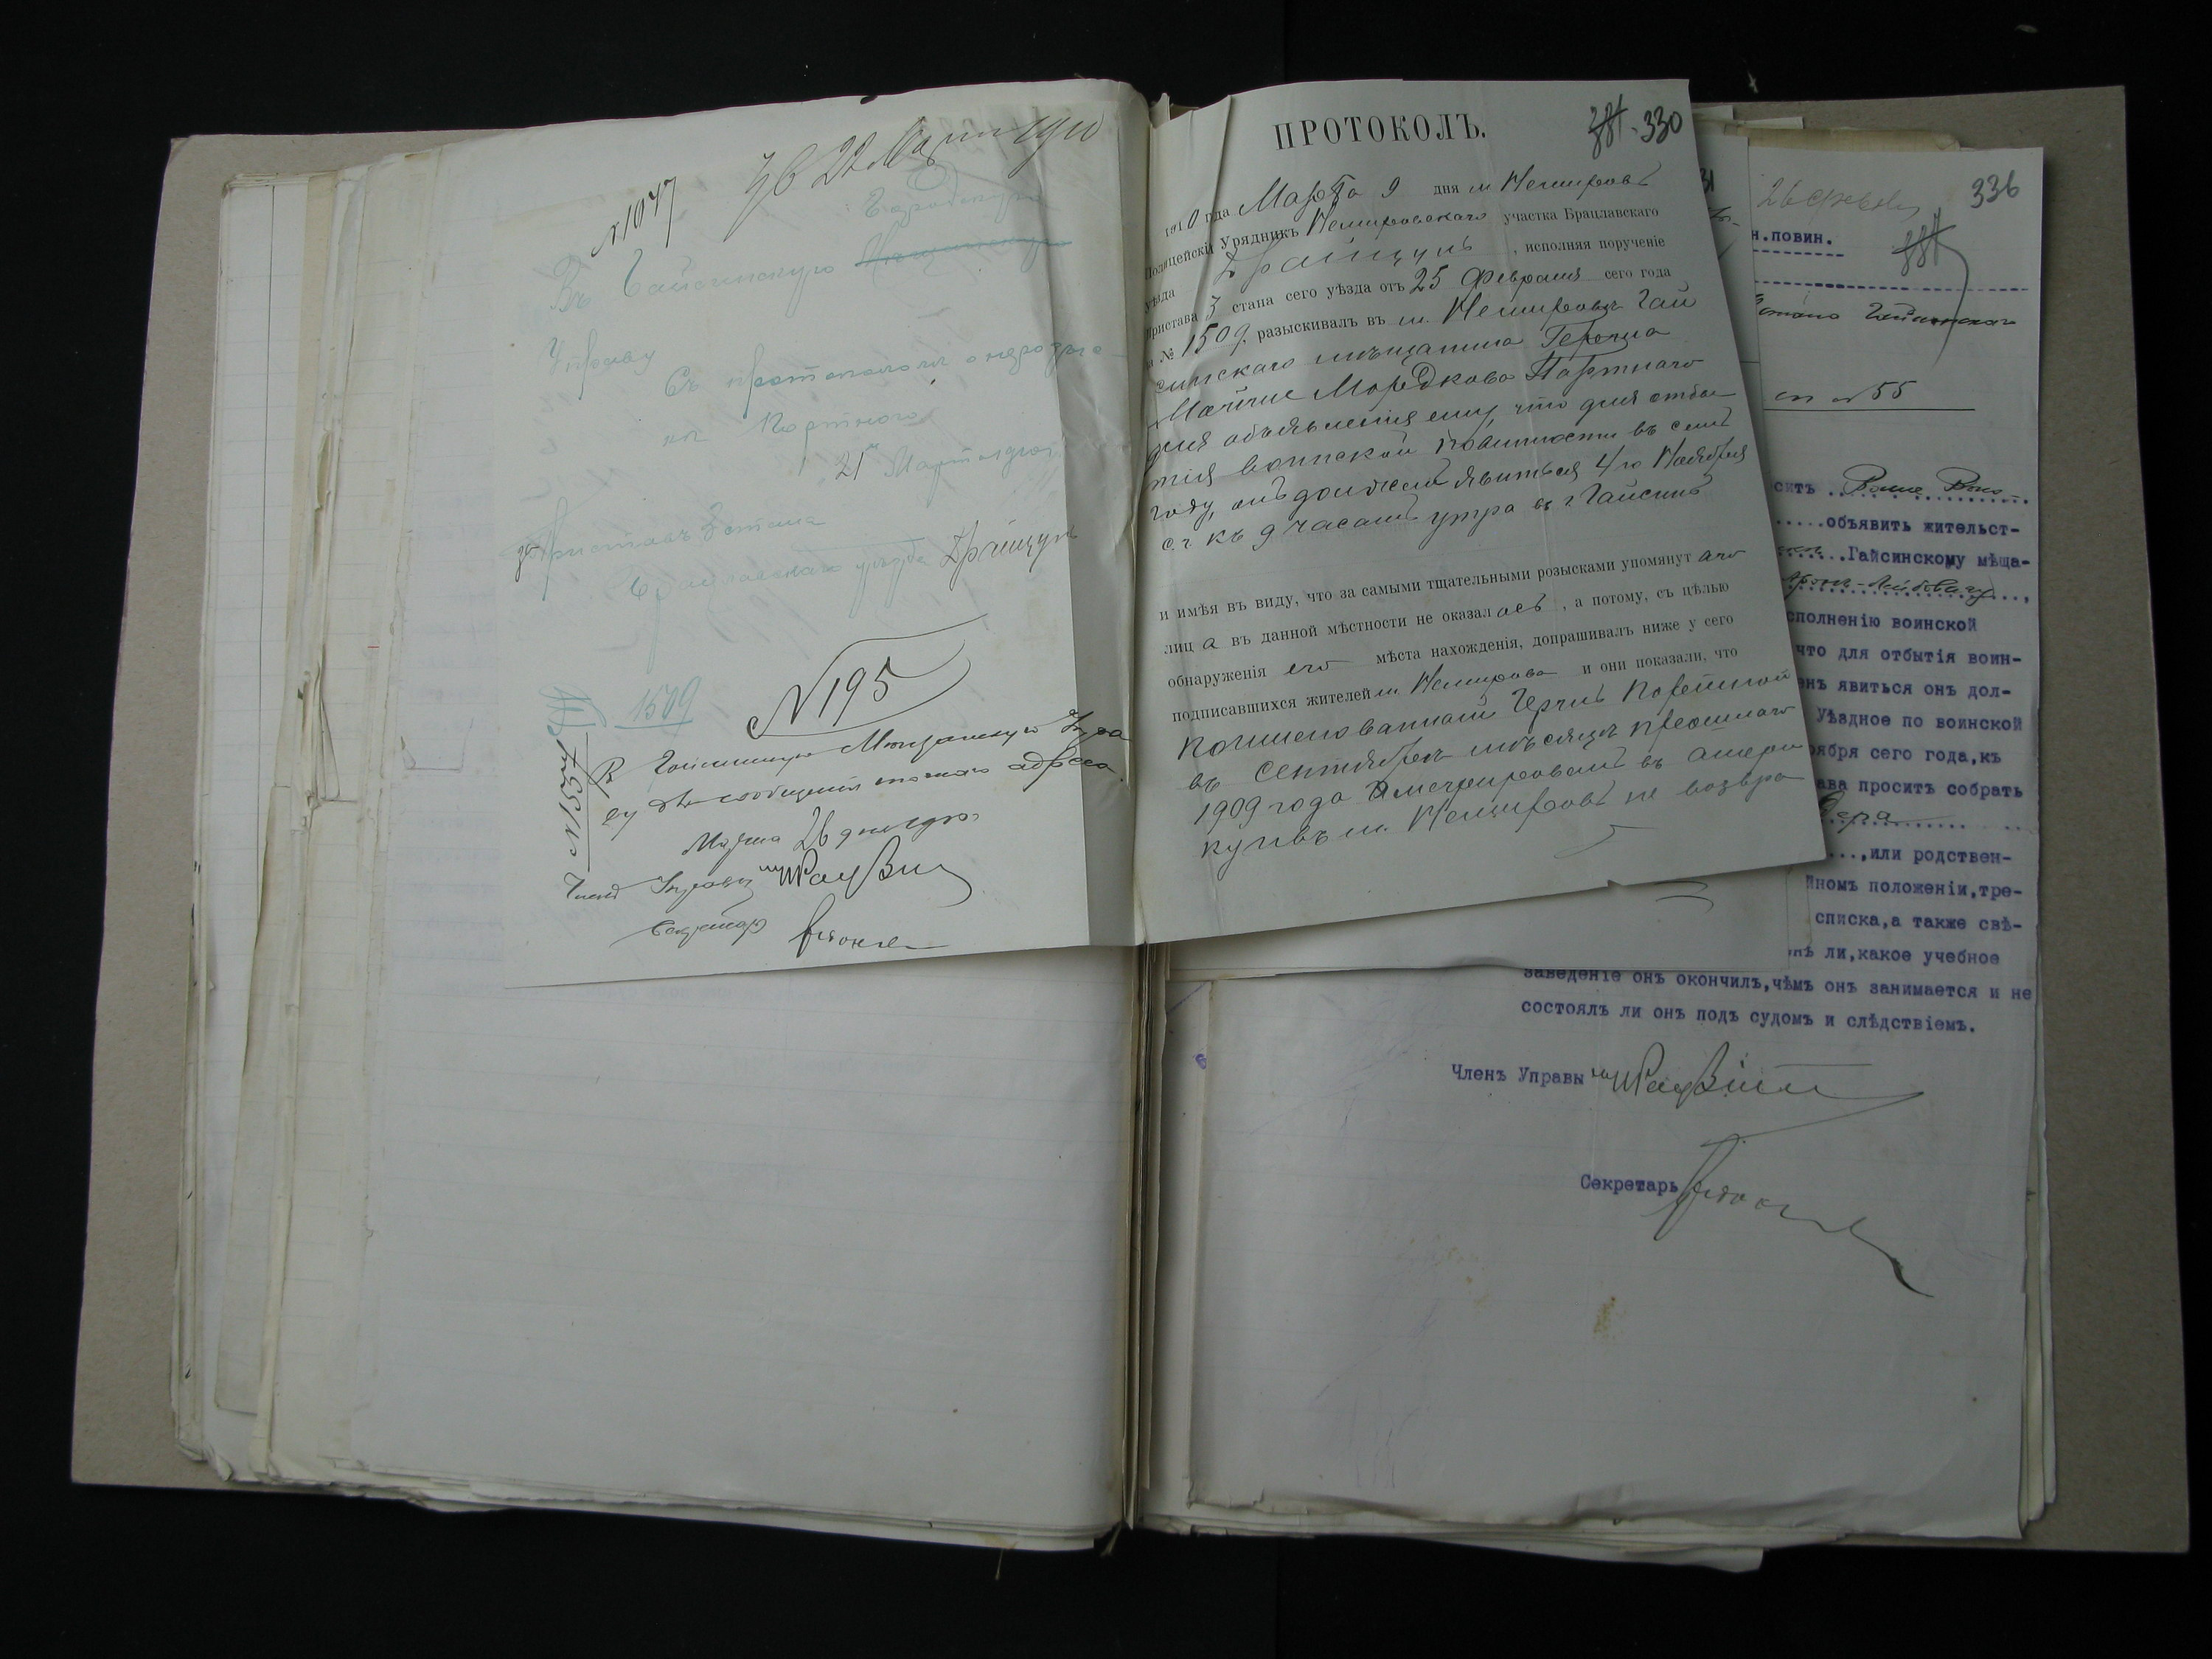 № 1047
22 Марта 1910
Городскую
Въ Гайсинскую
Управу
Съ протоколомъ о нерозыс-
ки Портного
21 Марта
Приставъ 3 стана
Брацлавскаго уѣзда
1509
№ 195
№ 1554
Въ Гайсинскую Мѣщанскую Упра
ву для сообщенія точнаго адреса.
Марта 26 дня 1910 г.
Членъ Управы
Секретарь
ПРОТОКОЛЪ.
330
1910 года Марта 9 дня м Немировъ
Полицейскій Урядникъ Немировскаго участка Брацлавскаго
уѣзда , исполняя порученіе
Пристава 3 стана сего уѣзда отъ 25 Февраля сего года
за № 1509. разыскивалъ въ м. Немировъ Гай
синскаго мѣщанина Герцка
Мордкова Портнаго
для объявленія ему, что для отбы
тія воинской повинности въ семъ
году, онъ долженъ явиться 4го Ноября
с.г. къ 9 часамъ утра въ г. Гайсинъ
и имѣя въ виду, что за самыми тщательными розысками упомянут аго
лиц а въ данной мѣстности не оказал ось , а потому, съ цѣлью
обнаруженія его мѣста нахожденія, допрашивалъ ниже у сего
подписавшихся жителей м. Немирова и они показали, что
поименованный Герчиъ Портной
въ Сентябрѣ мѣсяцѣ прошлаго
1909 года эмегрировалъ въ амери
ку и въ м. Немировъ не возвра
336
26
н.повин.
стана Гайсинскаго
№ 55
ситъ .. Ваше Высо
.....объявить жительст-
......Гайсинскому мѣща-
сполненію воинской
что для отбытія воин-
енъ явиться онъ дол-
Уѣздное по воинской
оября сего года,къ
ава проситъ собрать
....,или родствен-
йномъ положеніи,тре-
списка,а также свѣ-
нъ ли,какое учебное
заведеніе онъ окончилъ,чѣмъ онъ занимается и не
состоялъ ли онъ подъ судомъ и слѣдствіемъ.
Членъ Управы
Секретарь